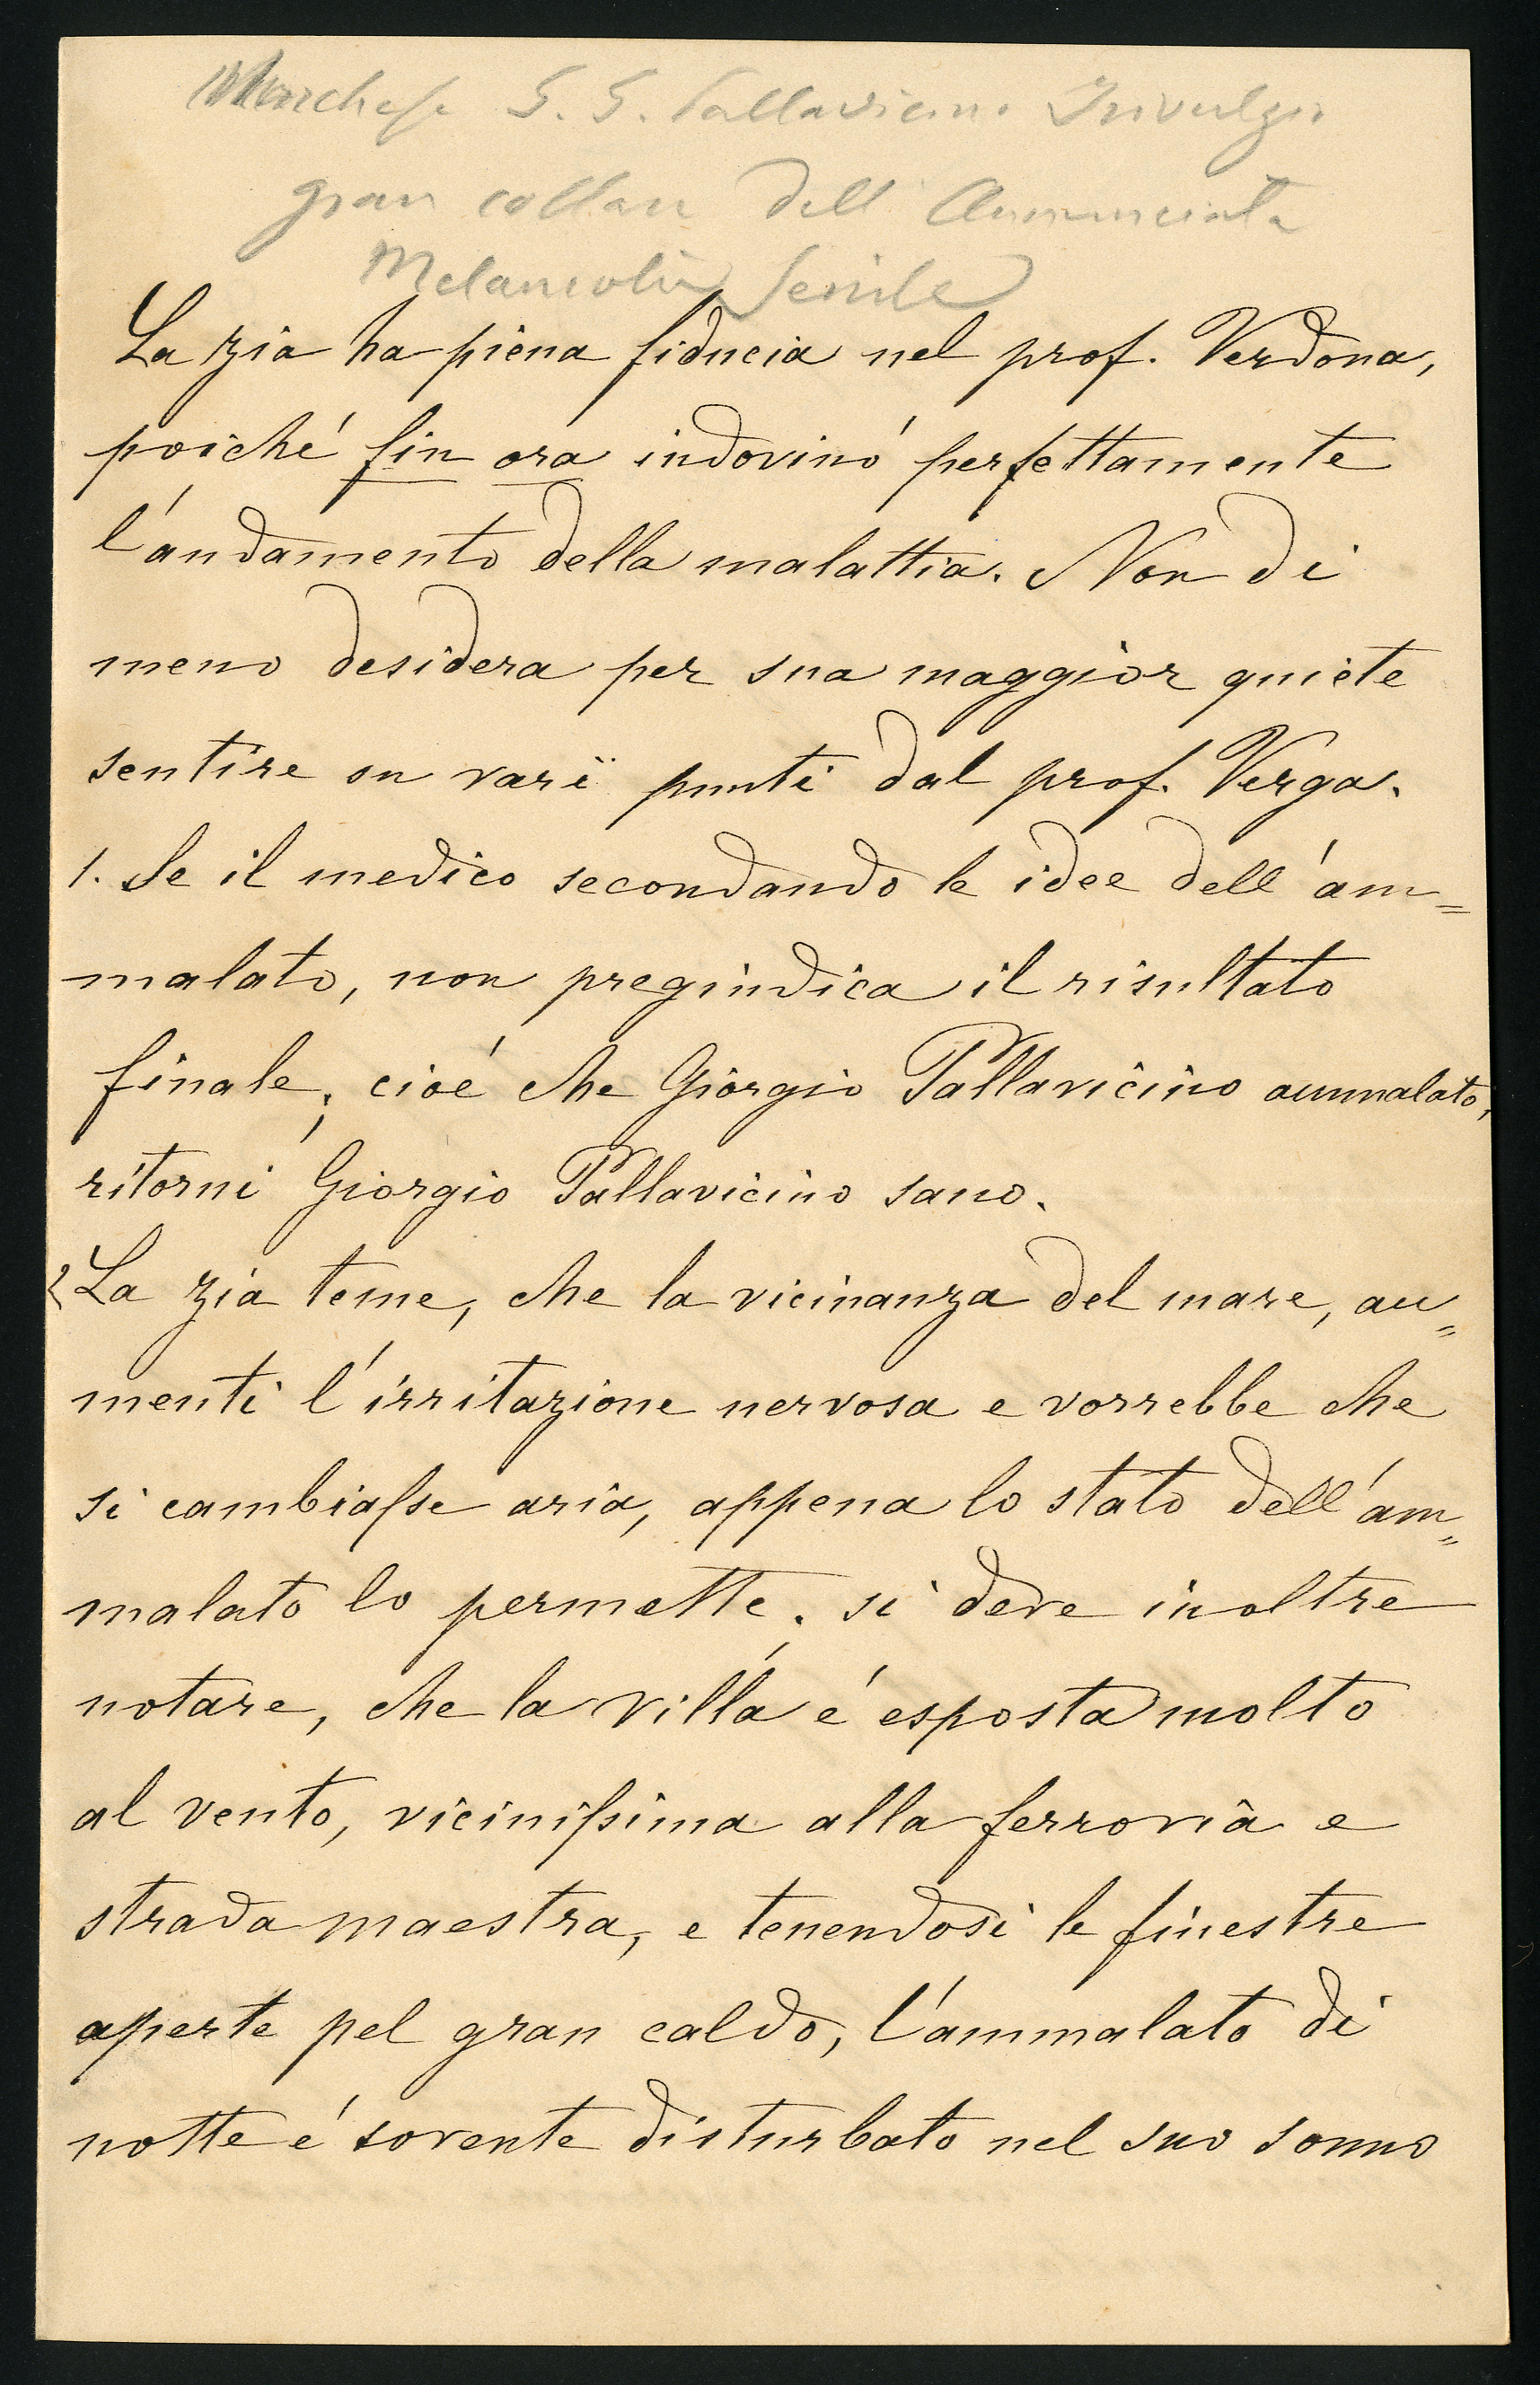 Marchese G. G. Pallavicino Trivulzio
gran collare dell'Annunciata
Melancolia Senile
La zia ha piena fiducia nel prof. Verdona,
poiché fin ora indovinó perfettamente
l'andamento della malattia. Non di
meno desidera per sua maggior quiete
sentire su varï punti dal prof. Verga.
1. Se il medico secondando le idee dell'am=
malato, non pregiudica il risultato
finale; cioé che Giorgio Pallavicino ammalato,
ritorni Giorgio Pallavicino sano.
2 La zia teme, che la vicinanza del mare, au=
menti l'irritazione nervosa e vorrebbe che
si cambiasse aria, appena lo stato dell'am=
malato lo permette. si deve inoltre
notare, che la villa é esposta molto
al vento, vicinissima alla ferrovia e
strada maestra, e tenendosi le finestre
aperte pel gran caldo, l'ammalato di
notte é sovente disturbato nel suo sonno